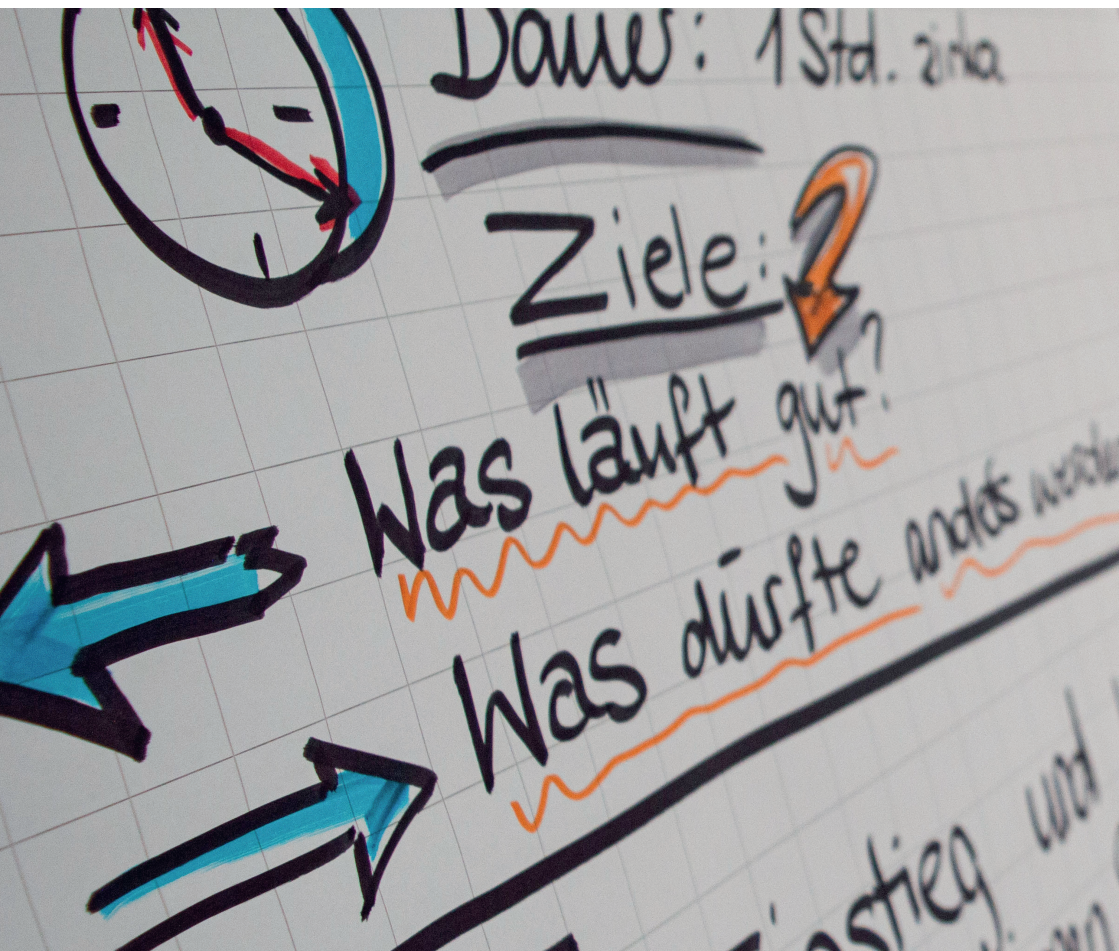 Dauer: 1 Std. zirka
Ziele:
Was läuft gut?
Was dürfte anders werden
und